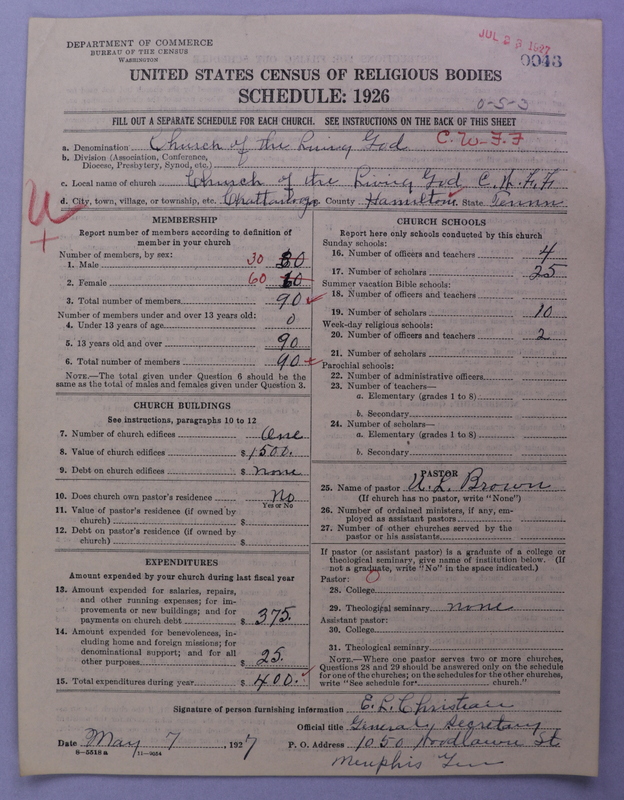 DEPARTMENT OF COMMERCE
BUREAU OF THE CENSUS
WASHINGTON
JUL 23 1927
0043
UNITED STATES CENSUS OF RELIGIOUS BODIES
SCHEDULE: 1926
0-5-3
FILL OUT A SEPARATE SCHEDULE FOR EACH CHURCH. SEE INSTRUCTIONS ON THE BACK OF THIS SHEET
a. Denomination Church of the Living God C.W-F.F
b. Division (Association, Conference,
Diocese, Presbytery, Synod, etc.)
c. Local name of church Church of the Living God C. W. F. F.
d. City, town, village, or township, etc. Chattanooga County Hamilton State Tenn
MEMBERSHIP
Report number of members according to definition of
member in your church
Number of members, by sex:
1. Male 30
2. Female 60
3. Total number of members 90
Number of members under and over 13 years old:
4. Under 13 years of age 0
5. 13 years old and over 90
6. Total number of members 90
NOTE.—The total given under Question 6 should be the
same as the total of males and females given under Question 3.
CHURCH BUILDINGS
See instructions, paragraphs 10 to 12
7. Number of church edifices One
8. Value of church edifices $1500.
9. Debt on church edifices $ none
10. Does church own pastor's residence No
Yes or No
11. Value of pastor's residence (if owned by
church) $
12. Debt on pastor's residence (if owned by
church) $
EXPENDITURES
Amount expended by your church during last fiscal year
13. Amount expended for salaries, repairs,
and other running expenses; for im-
provements or new buildings; and for
payments on church debt $ 375.
14. Amount expended for benevolences, in-
cluding home and foreign missions; for
denominational support; and for all
other purposes $ 25.
15. Total expenditures during year $ 400.
CHURCH SCHOOLS
Report here only schools conducted by this church
Sunday schools:
16. Number of officers and teachers 4
17. Number of scholars 25
Summer vacation Bible schools:
18. Number of officers and teachers
19. Number of scholars 10
Week-day religious schools:
20. Number of officers and teachers 2
21. Number of scholars
Parochial schools:
22. Number of administrative officers
23. Number of teachers—
a. Elementary (grades 1 to 8)
b. Secondary
24. Number of scholars—
a. Elementary (grades 1 to 8)
b. Secondary
PASTOR
25. Name of pastor U. L. Brown
(If church has no pastor, write "None")
26. Number of ordained ministers, if any, em-
ployed as assistant pastors
27. Number of other churches served by the
pastor or his assistants
If pastor (or assistant pastor) is a graduate of a college or
theological seminary, give name of institution below. (If
not a graduate, write "No" in the space indicated.)
Pastor:
28. College 0
29. Theological seminary none
Assistant pastor:
30. College
31. Theological seminary
NOTE.—Where one pastor serves two or more churches,
Questions 28 and 29 should be answered only on the schedule
for one of the churches; on the schedules for the other churches,
write "See schedule for church."
Signature of person furnishing information E. L. Christian
Official title General Secretary
Date May 7, 1927 P. O. Address 1050 Woodlawn St
8-5518 a 11-9054 Memphis Tenn